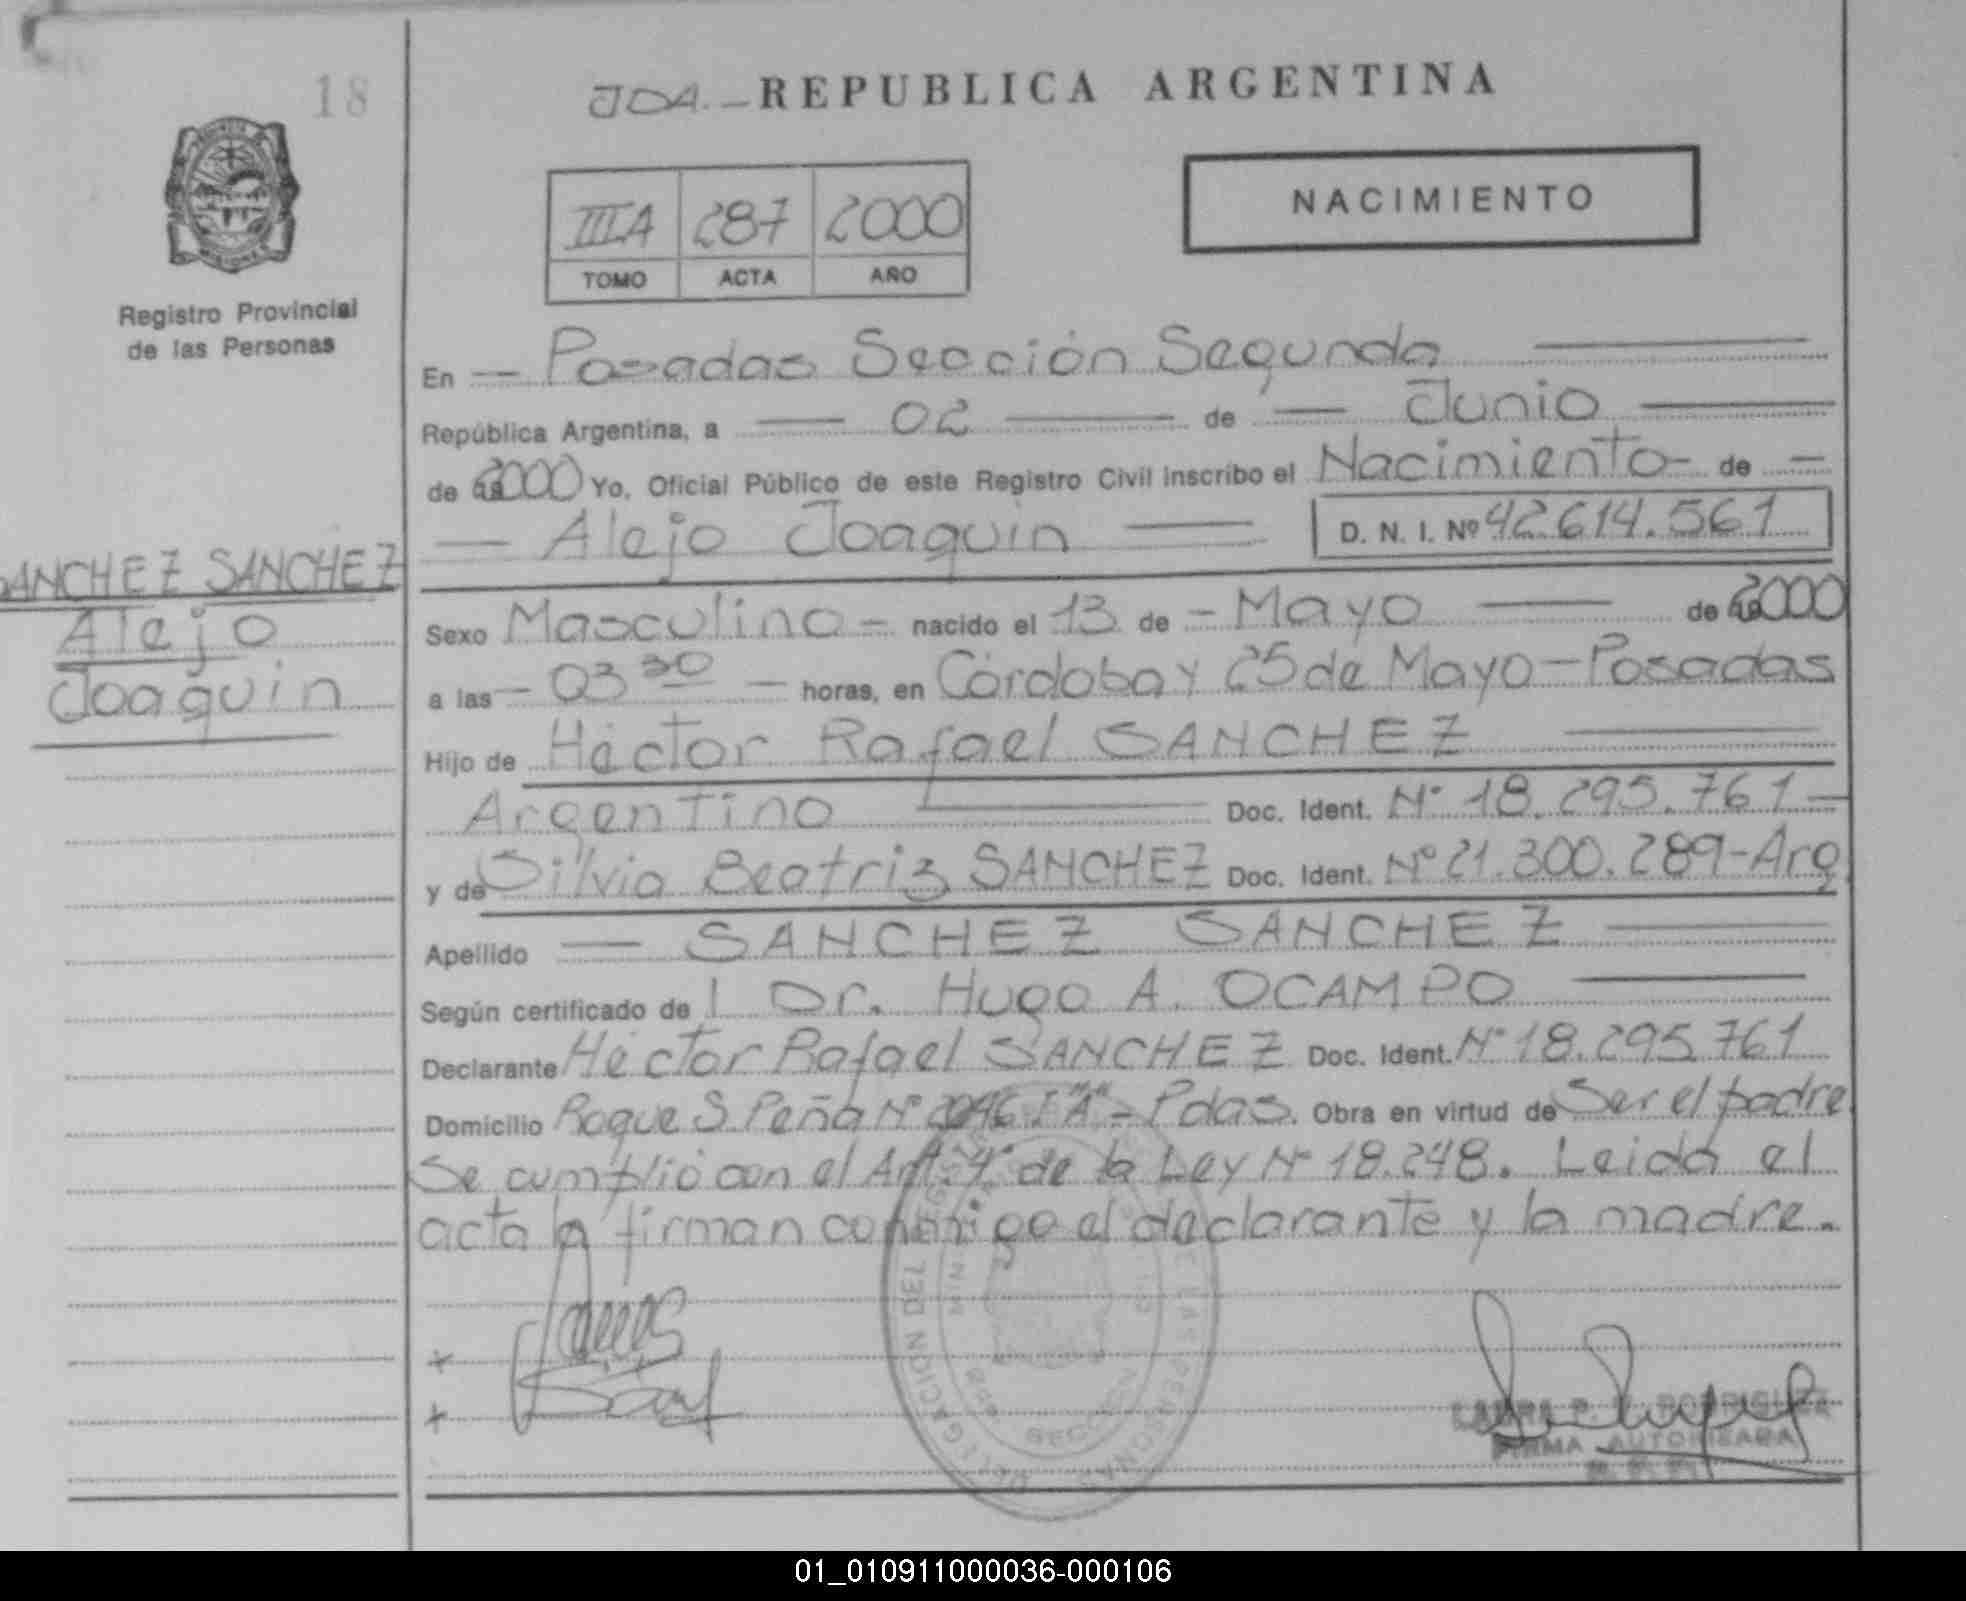 18
JDA.- REPUBLICA ARGENTINA
PROVINCIA DE
MISIONES
Registro Provincial
de las Personas
III A 287 2000
TOMO ACTA AÑO
NACIMIENTO
En - Posadas Sección Segunda
República Argentina, a - 02 - de - Junio
de 2000 Yo, Oficial Público de este Registro Civil inscribo el Nacimiento - de -
- Alejo Joaquin - D. N. I. Nº 42.614.561
SANCHEZ SANCHEZ
Alejo
Joaquin
Sexo Masculino - nacido el 13 de - Mayo - de 2000
a las - 03 30 - horas, en Córdoba y 25 de Mayo - Posadas
Hijo de Héctor Rafael SANCHEZ
Argentino Doc. Ident. Nº 18.295.761 -
y de Silvia Beatriz SANCHEZ Doc. Ident. Nº 21.300.289 - Arg.
Apellido - SANCHEZ SANCHEZ
Según certificado de l Dr. Hugo A. OCAMPO
Declarante Héctor Rafael SANCHEZ Doc. Ident. Nº 18.295.761
Domicilio Roque S. Peña Nº 2046 "A" - Pdas. Obra en virtud de Ser el padre.
Se cumplió con el Art. 4º de la Ley Nº 18.248. Leida el
acta la firman conmigo el declarante y la madre.
DELEGACION DEL REGISTRO DE LAS PERSONAS
SECCION
+
+
LAURA P. RODRIGUEZ
FIRMA AUTORIZADA
01_010911000036-000106